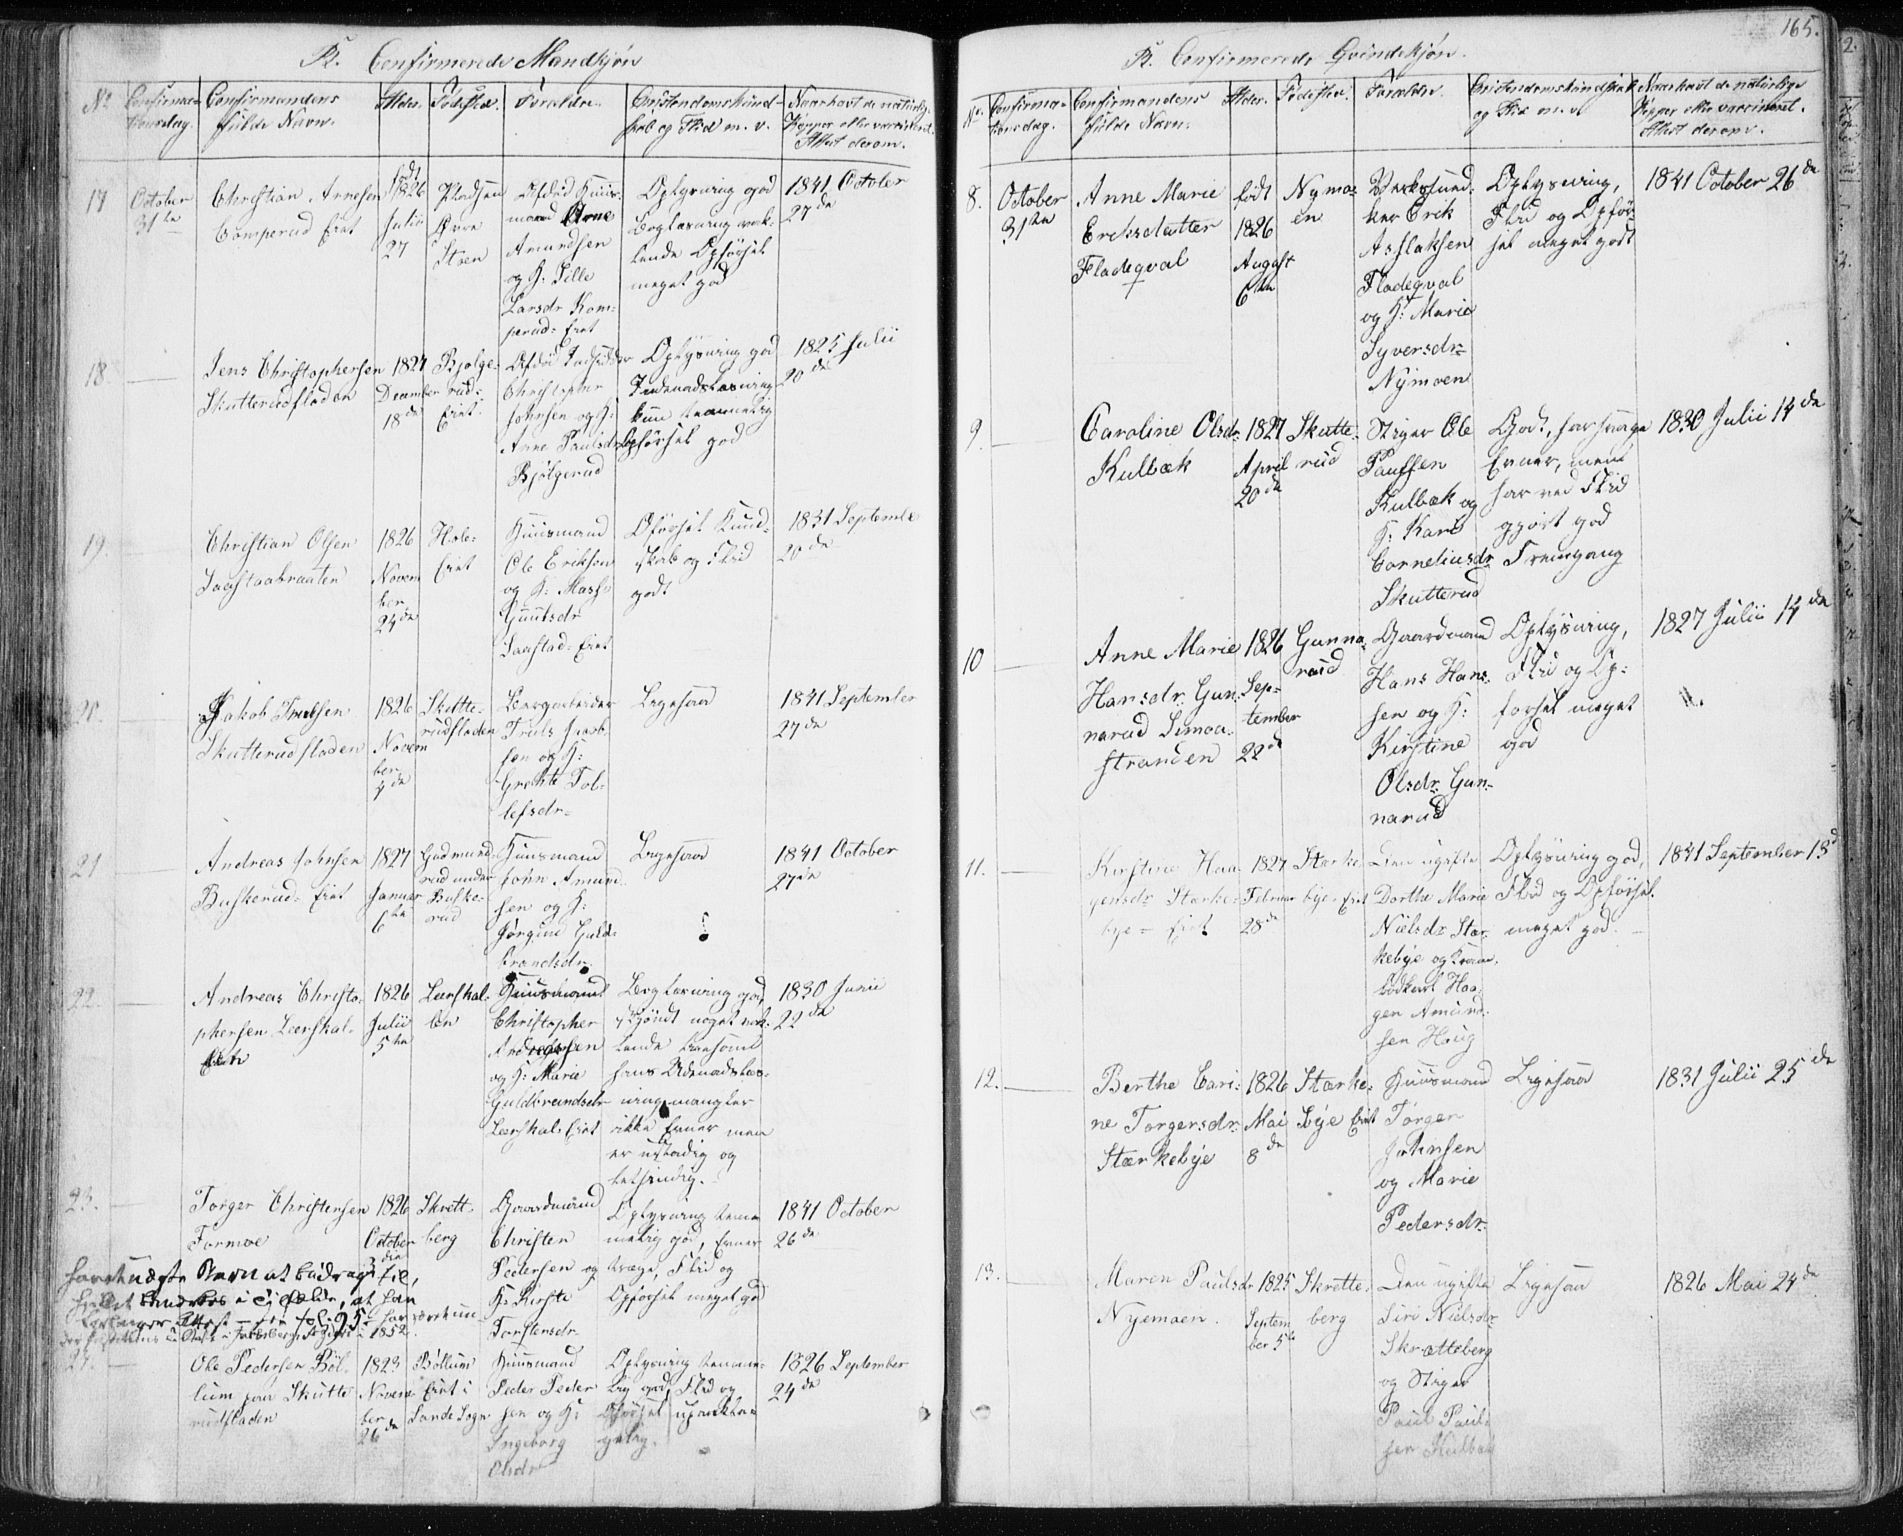 Confirmerede Mandkjøn
No
Confirma-
tionsdag.
Confirmandens
fulde Navn.
Alder.
Fødested.
Forældre.
Christendomskund-
skab og Flid m. v.
Naar havt de naturlige
Kopper eller vaccineret.
Attest derom.
17
October
31te
Christian Arnesen
Komperud Eiet
født
1826
Julii
27
Øvre
Steen
Afdød Huus-
mand Arne
Amundsen
og H: Pille
Larsdr Kom-
perud Eiet
Oplysning god
Boglæsning vak-
lende Opførsel
meget god
1841 October
27de
18
Jens Christophersen
Skutterudfladen
1827
December
18de
Bjølge-
rud-
Eiet
Afdød Indsidder
Christopher
Johnsen og H:
Anne Paulsdr
Bjølgerud
Oplysning god
Indenadslæsning
kun temmelig
Opførsel god
1825 Julii
20de
19
Christian Olsen
Saastadbraaten
1826
Novem
ber
24de
Hole-
Eiet
Huusmand
Ole Eriksen
og H: Marthe
Gunilsdr
Saastad-Eiet
Opførsel Kund-
skab og Flid
godt
1831 September
20de
20.
Jakob Trulsen
Skutterudfladen
1826
Novem
ber
4de
Skutte-
rudfladen
Bergarbeider
Truls Jacob-
sen og H:
Grethe Tol-
lefsdr
Ligesaa
1841 September
27de
21
Andreas Johnsen
Buskerud-Eiet
1827
Januar
6te
Gudmund-
rud under
Buske-
rud
Huusmand
John Amund-
sen og H:
Jørgine Guld-
brandsdr
Ligesaa
1841 October
27de
22.
Andreas Christo-
phersen Leerskal-
len
1826
Julii
5te
Leerskal-
len
Huusmand
Christopher
Andreassen
og H: Marie
Guldbrandsdr
Leerskal-Eiet
Boglæsning god,
skjøndt noget vak-
lende ligesom
hans Udenadslæs-
ning mangler
ikke Evner men
er ustadig og
letsindig.
1830 Junii
22de
23.
Torger Christensen
Formoe
1826
October
Skrett-
berg
Gaardmand
Christen
Pedersen og
H: Kirste
Torstensdr
Oplysning temme-
melig god, Evner
træge, Flid og
Opførsel meget god
1841 October
26de
24.
Ole Pedersen Bøl-
lum paa Skutte
rudfladen
1823
Novem
ber
26de
Bøllum
Eiet i
Sande Sogn
Huusmand
Peder Peder
sen og H:
Ingeborg
Olsdr
Oplysning temme-
lig god, Flid og
Opførsel upaakla-
gelig.
1826 September
24de
165.
Confirmerede Qvindekjøn.
No.
Confirma-
tionsdag.
Confirmandens
fulde Navn.
Alder.
Fødested.
Forældre.
Christendomskundskab
og Flid m. v
Naar havt de naturlige
Kopper eller vaccineret.
Attest derom.
8.
October
31te
Anne Marie
Eriksdatter
Fladeqval
født
1826
August
6te
Nymo-
en
Erik
Asslaksen
Fladeqval
og H: Marie
Syversdr
Nymoen
Oplysning,
Flid og Opfør-
sel meget godt
1841 October 26de
9.
Caroline Olsdr
Kulbæk
1827
April
20de
Skutte-
rud
Stiger Ole
Paulsen
Kulbæk og
H: Kari
Corneliusdr
Skutterud
Godt, har svage
Evner, men
har ved Flid
gjort god
Fremgang
1830 Julii 14de
10
Anne Marie
Hansdr Gun-
narud Simoa-
stranden
1826
Sep-
tember
22de
Gunna-
rud
Gaardmand
Hans Han-
sen og H:
Kirstine
Olsdr Gun-
narud
Oplysning,
Flid og Op-
førsel meget
god
1827 Julii 14de
11.
Kirstine Haa-
gensdr Stærke-
bye - Eiet
1827
Februar
28de
Stærke
bye-Eiet
Den ugifte
Dorthe Marie
Nielsdr Stær-
kebye og
Haa-
gen Amund-
sen Haug
Oplysning god,
Flid og Opførsel
meget god.
1841 September 13de
12.
Berthe Cari-
ne Torgersdr
Stærkebye
1826
Mai
8de
Stærke-
bye Eiet
Huusmand
Torger
Johnsen
og Marie
Pedersdr
Ligesaa
1831 Julii 25de
13.
Maren Paulsdr
Nyemoen.
1825
Septem
ber 5te
Skrette-
berg
Den ugifte
Siri Nielsdr
Skretteberg
og Stiger
Paul Paul-
sen Kulbæk
Ligesaa
1826 Mai 24de